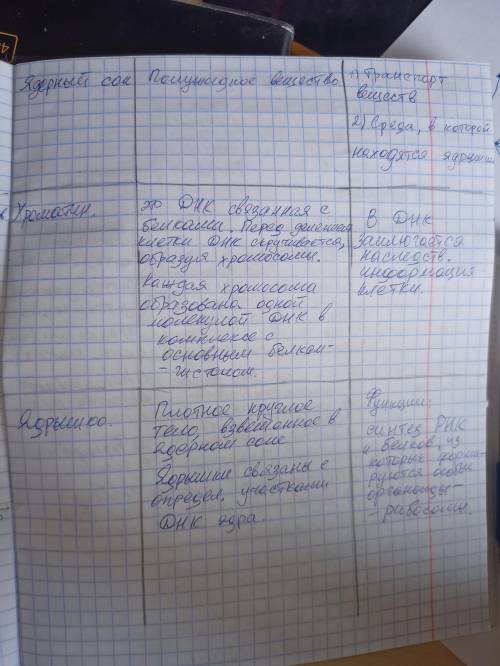 Ядерный сок
Полужидкое вещество
1) Транспорт
веществ
2) Среда, в которой
находятся ядрышки
Хроматин.
это ДНК связанная с
белками. Перед делением
клетки ДНК скручивается,
образуя хромосомы.
Каждая хромосома
образована одной
молекулой ДНК в
комплексе с
основным белком-
- гистоном.
В ДНК
заключается
наследств.
информация
клетки.
Ядрышко.
Плотное круглое
тело, взвешенное в
ядерном соке
Ядрышки связаны с
определ. участками
ДНК ядра.
Функции:
синтез РНК
и белков, из
которые форми-
руются особые
органоиды-
- рибосомы.